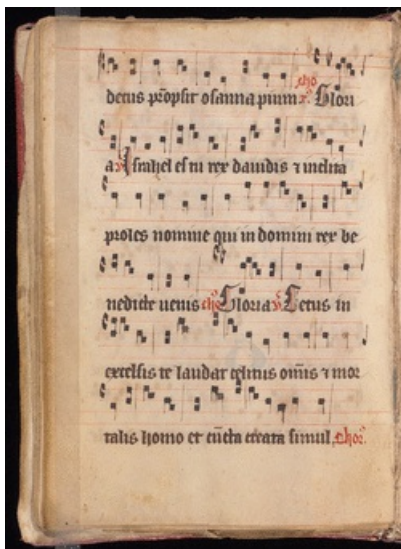 decus prōpsit osanna pium. cho Glori
a Israhel es tu rex dauidis ⁊ inclita
proles nomine qui in domini rex be
nedicte uenis cho Gloria ℣ Cetus in
excelsis te laudat celitus om̄is ⁊ mor
talis homo et cūcta creata simul. chor.